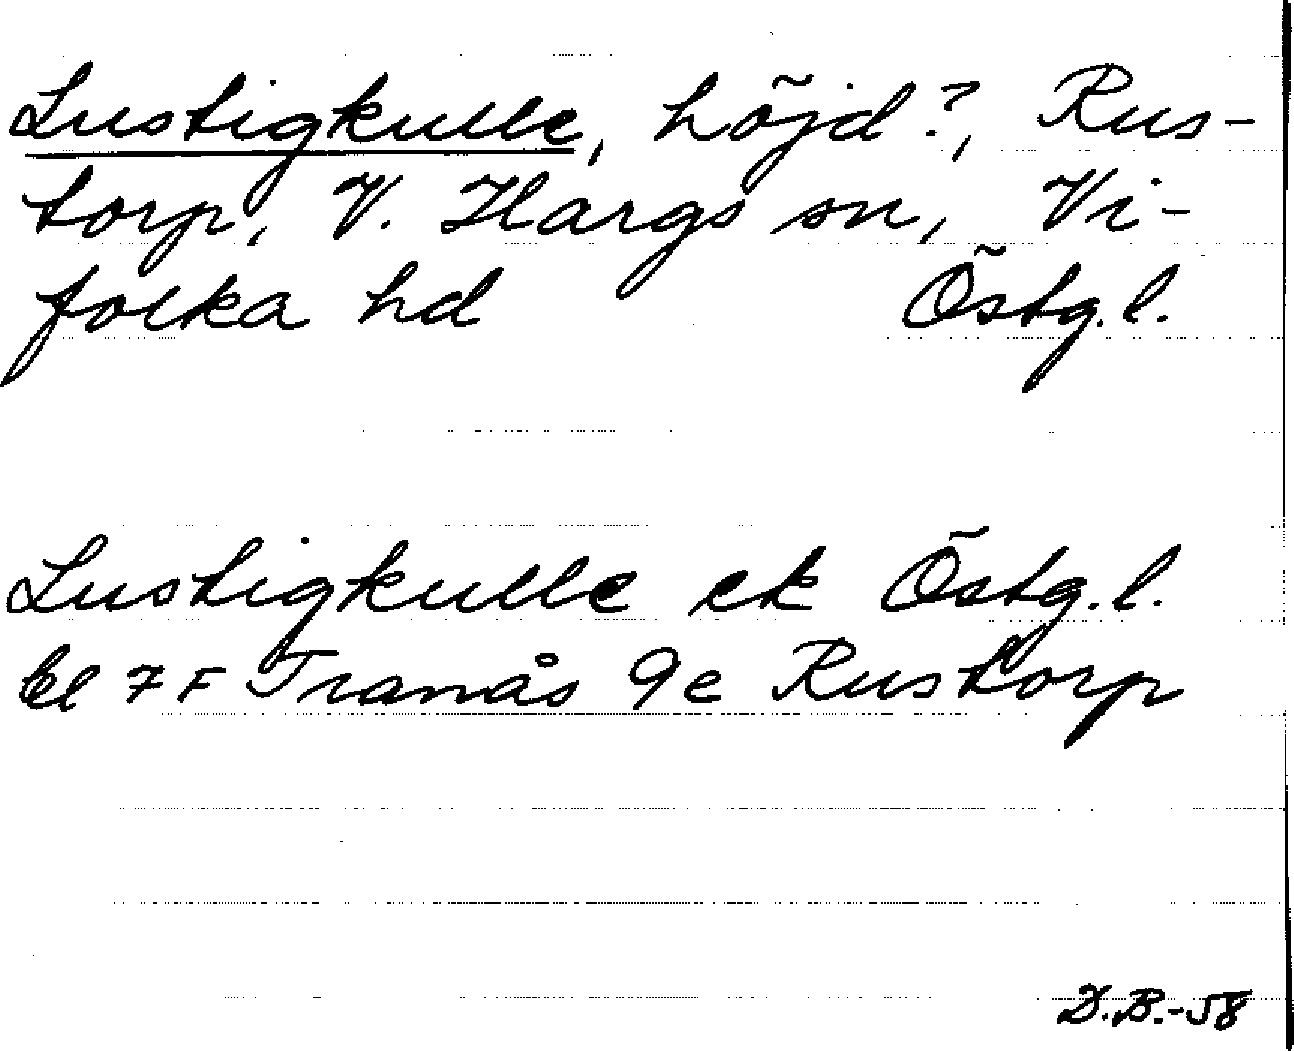 Lustigkulle, höjd?, Rus-
torp, V. Hargs sn, Vi-
folka hd Östg.l.
Lustigkulle ek Östg.l.
bl 7F Tranås 9e Rustorp
D.B.-58